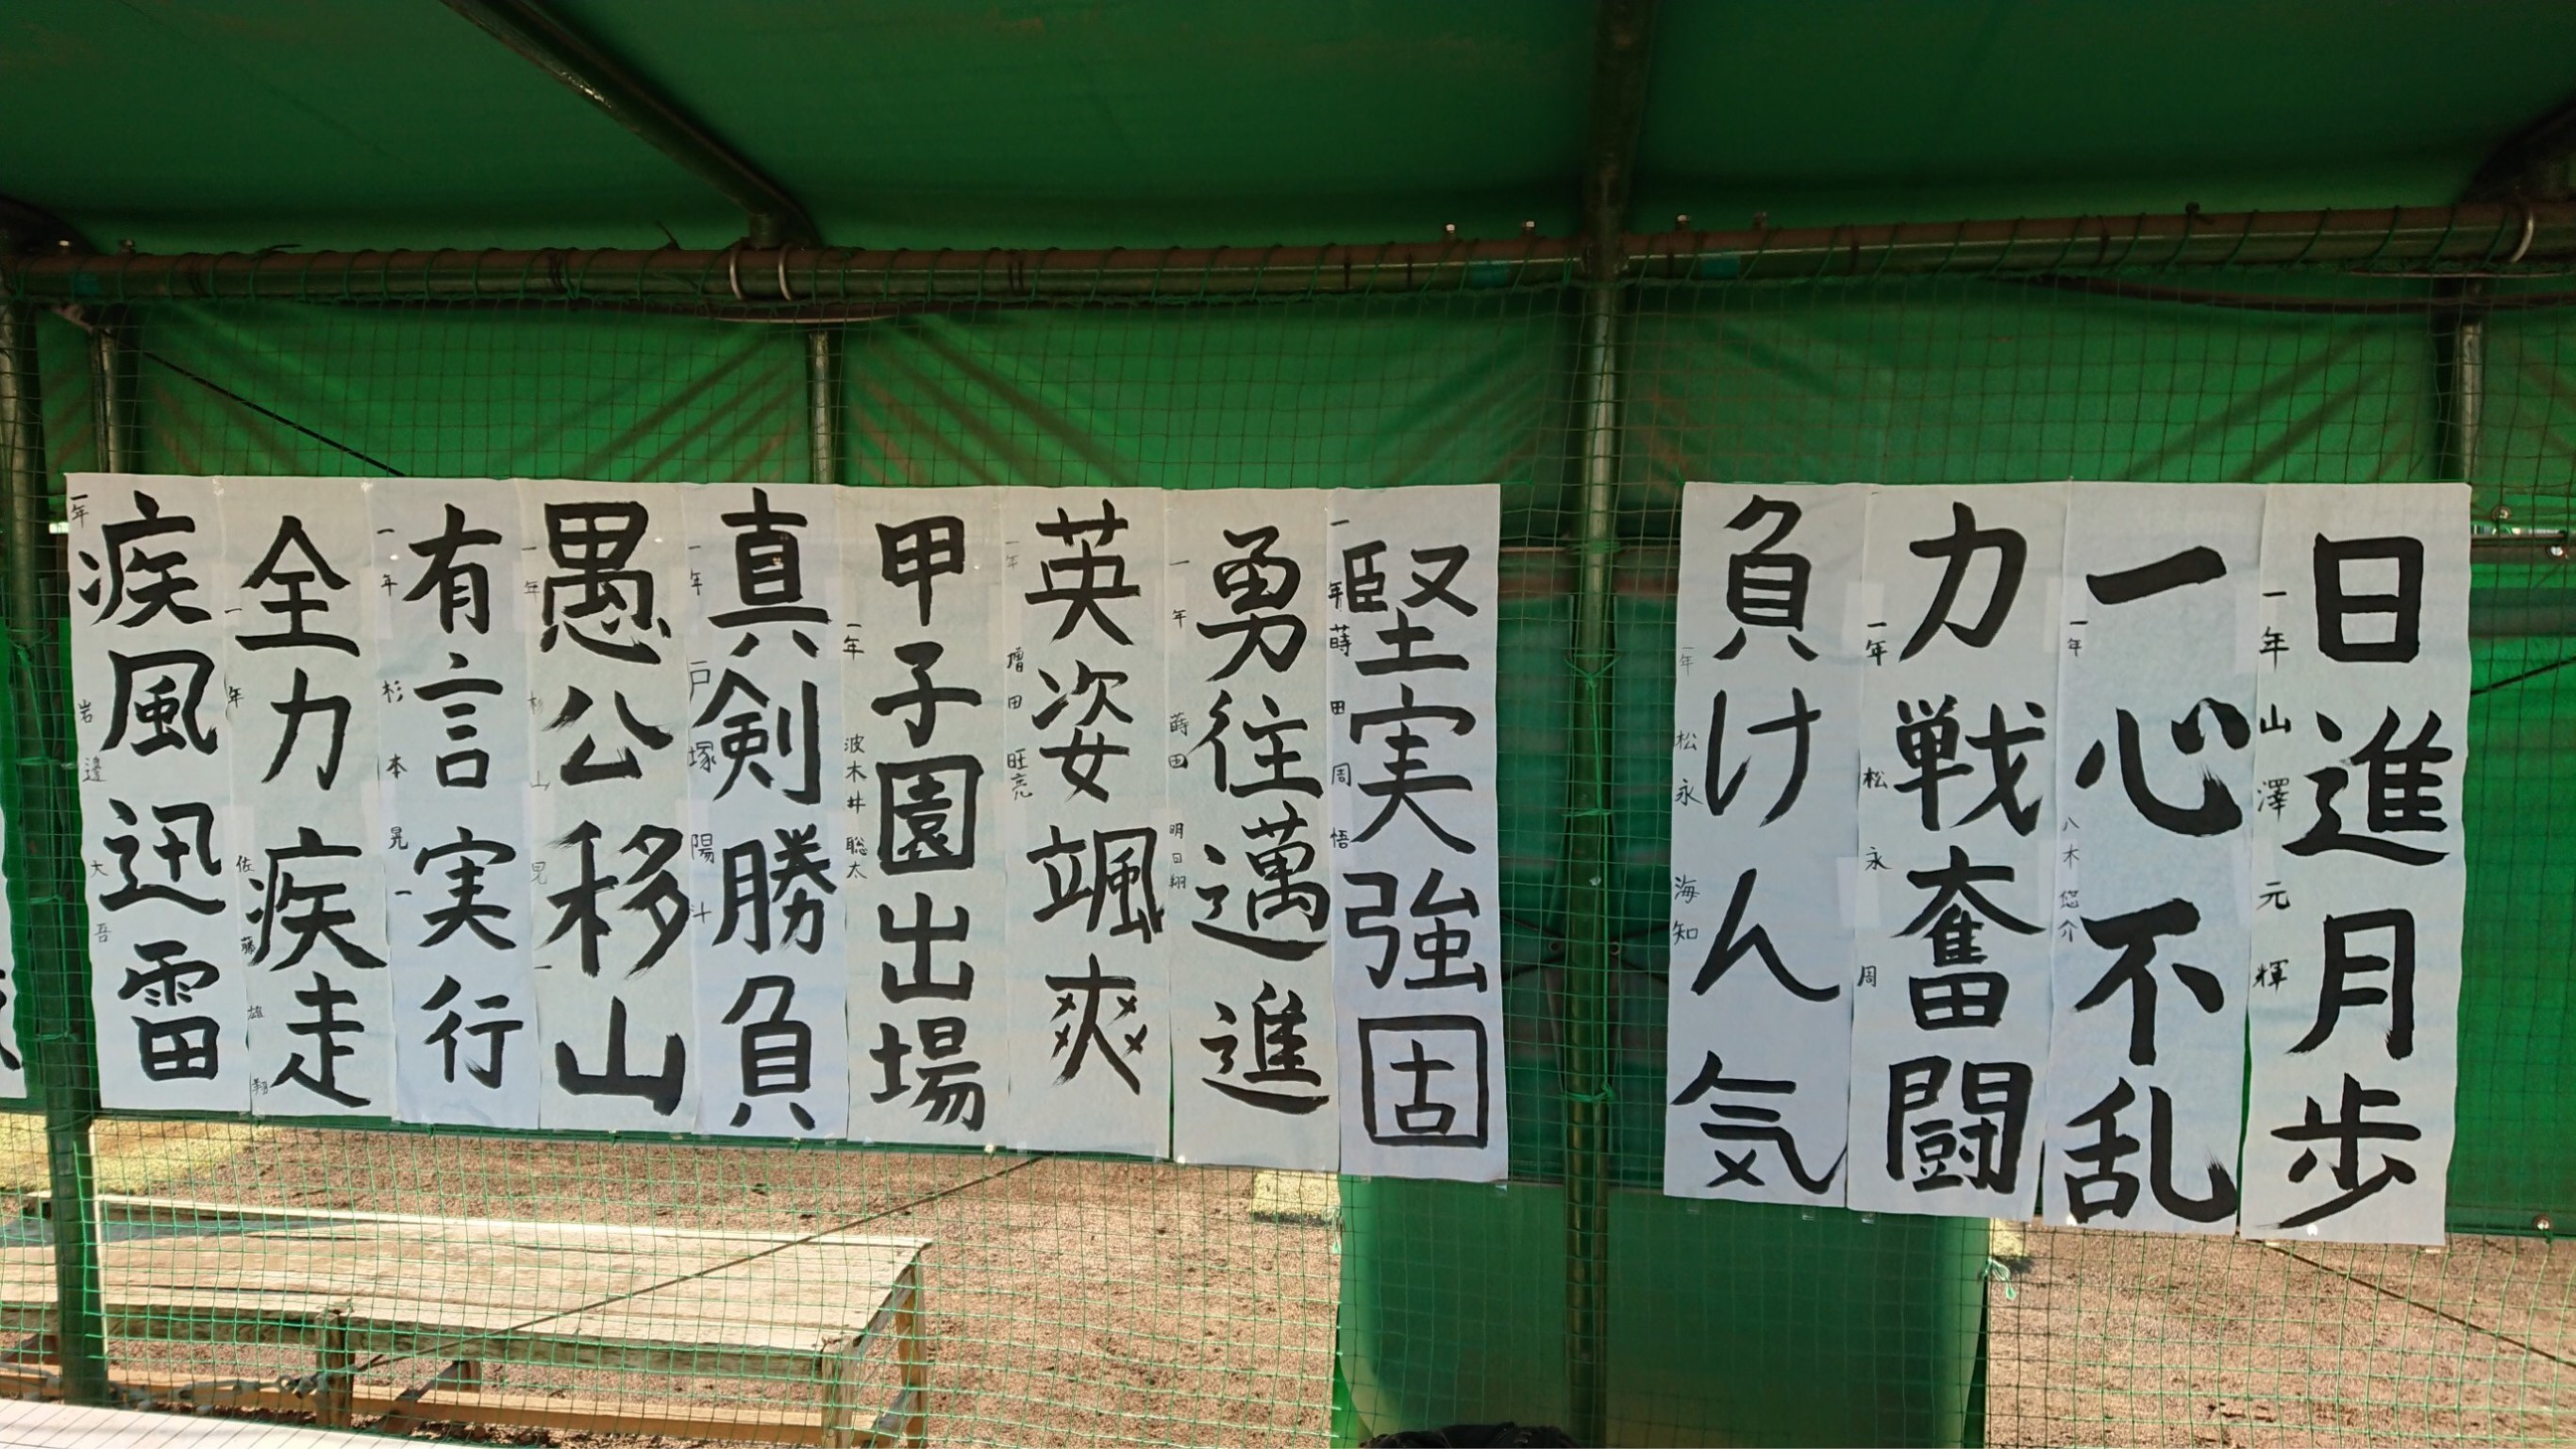 日進月歩
一年 山澤元輝
一心不乱
一年 八木悠介
力戦奮闘
一年 松永 周
負けん気
一年 松永海知
堅実強固
一年 蒔田周悟
勇往邁進
一年 蒔田明日翔
英姿颯爽
一年 増田旺亮
甲子園出場
一年 波木井聡太
真剣勝負
一年 戸塚陽斗
愚公移山
一年 杉山晃一
有言実行
一年 杉本晃一
全力疾走
一年 佐藤雄翔
疾風迅雷
一年 岩邉大吾